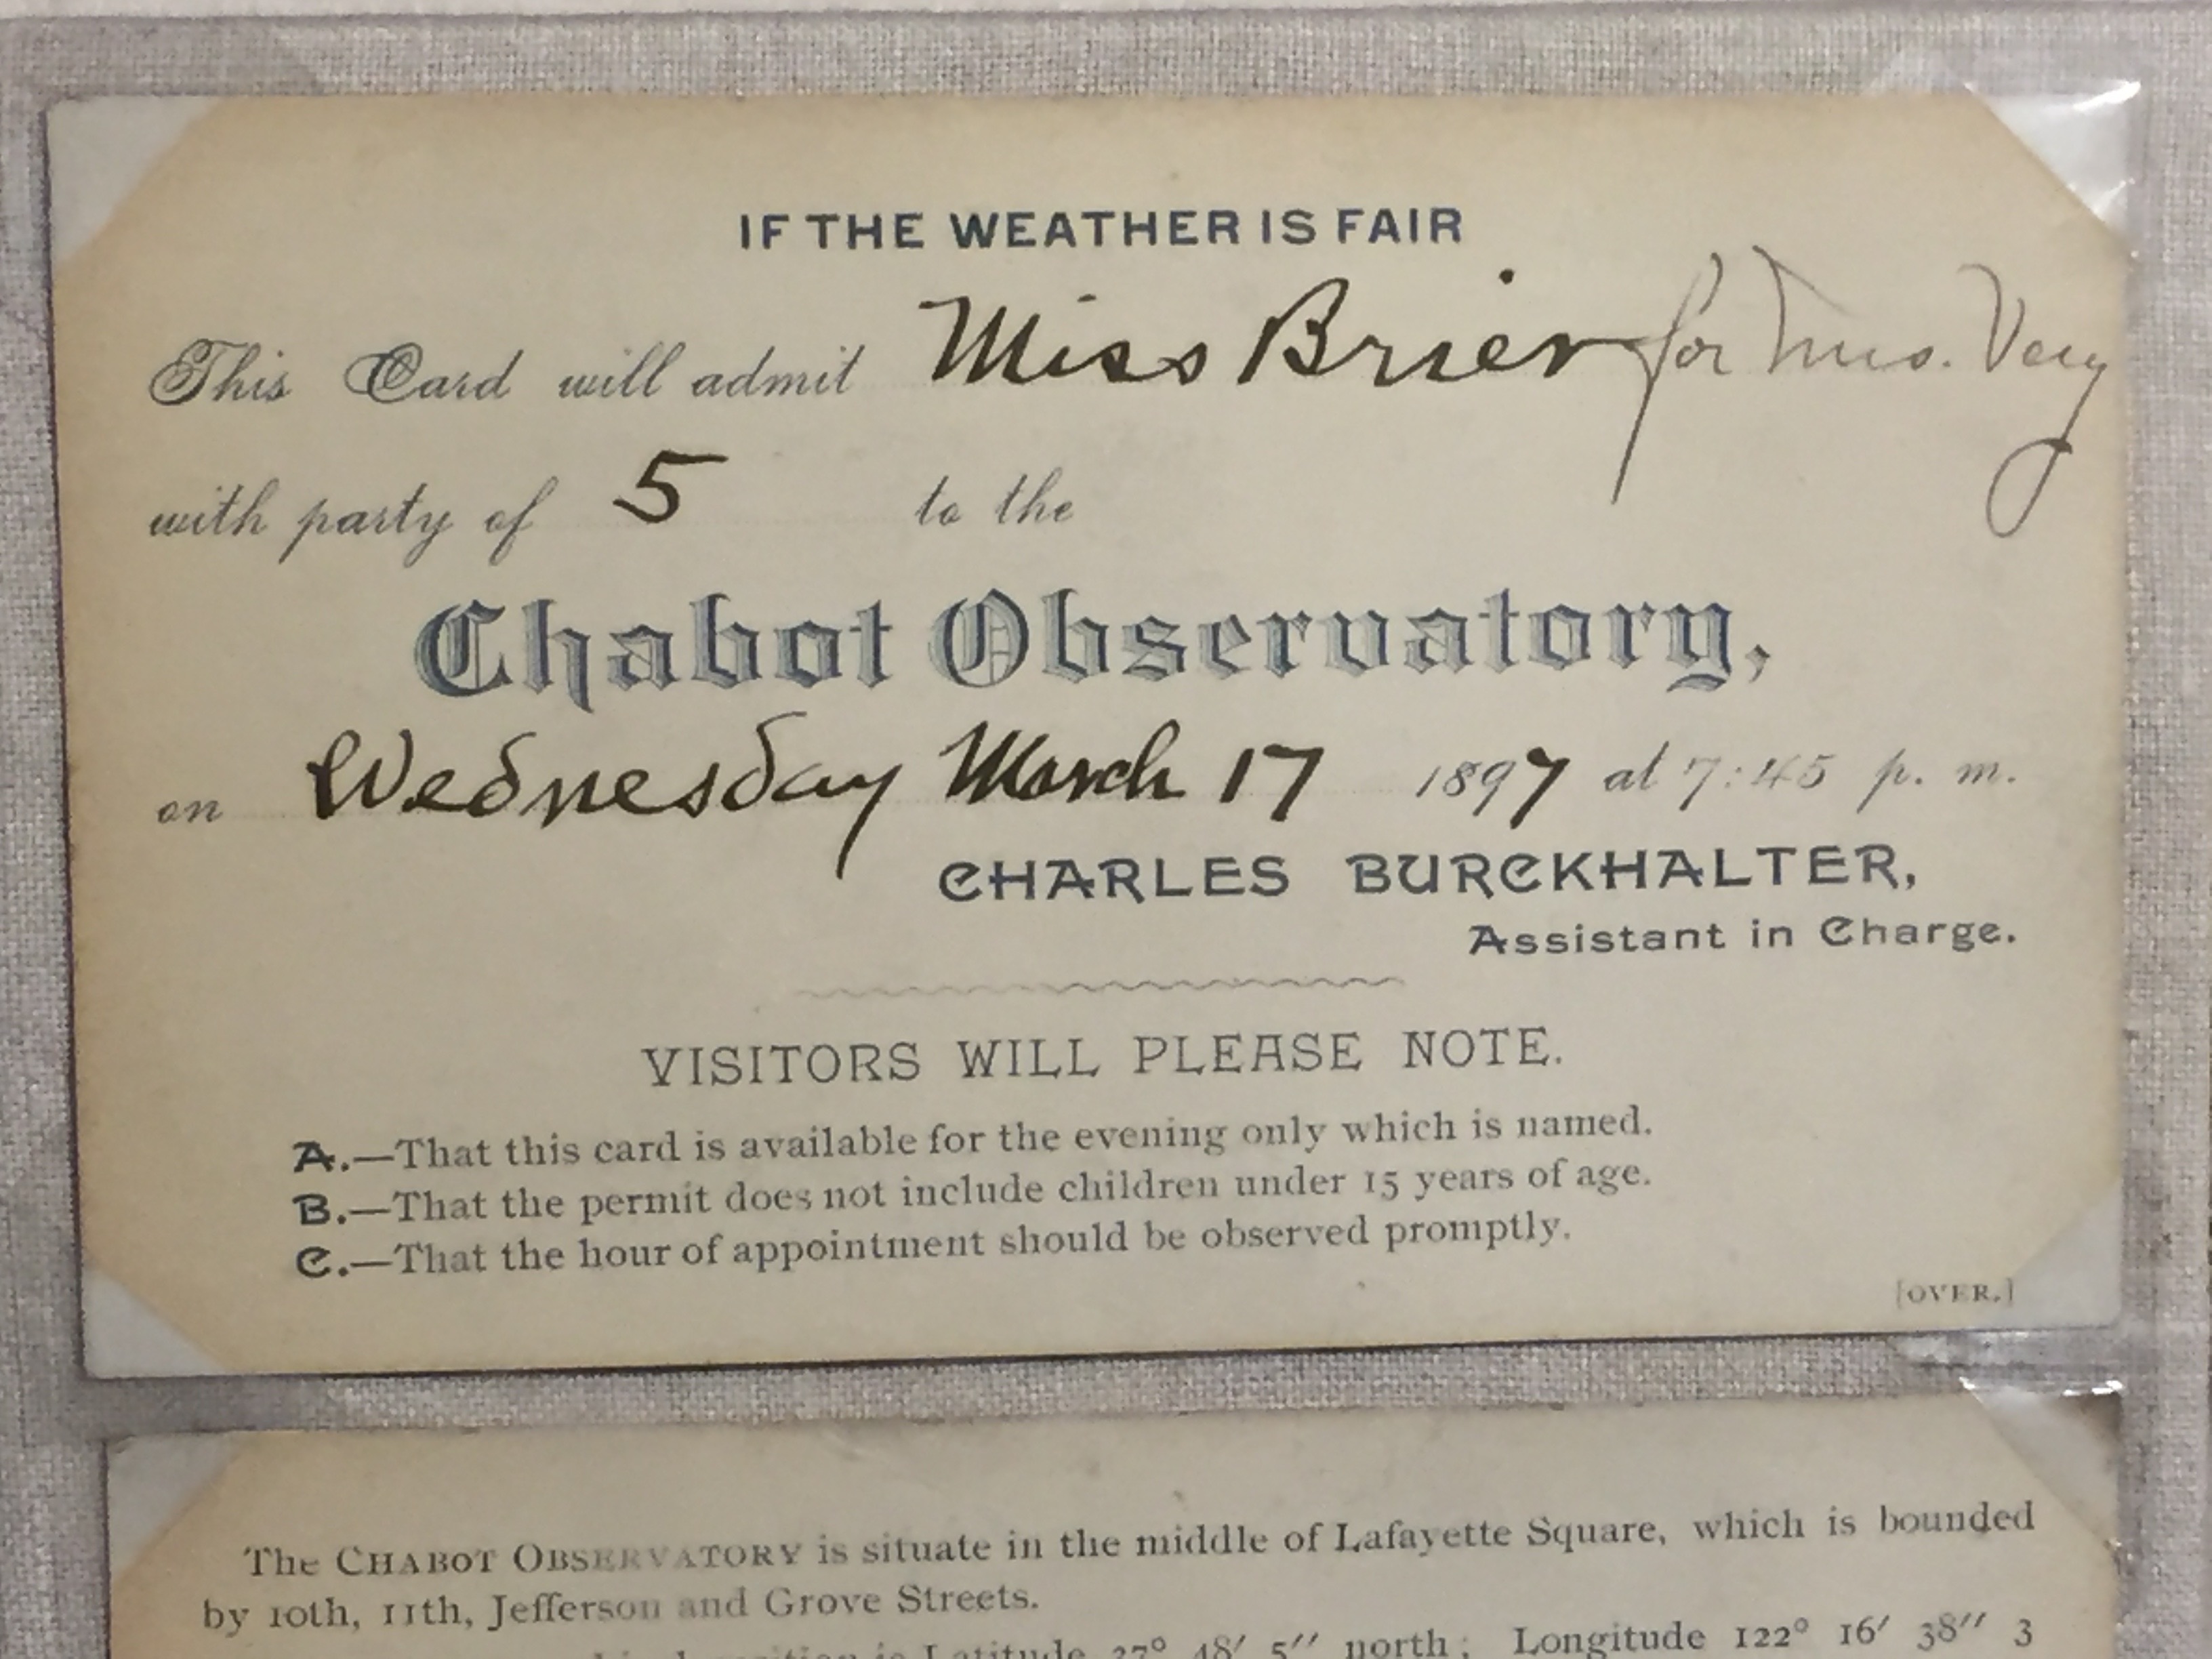 IF THE WEATHER IS FAIR
This Card will admit Miss Brier for Mrs. Very
with party of 5 to the
Chabot Observatory,
on Wednesday March 17 1897 at 7:45 p. m.
CHARLES BURCKHALTER,
Assistant in Charge.
VISITORS WILL PLEASE NOTE.
A.—That this card is available for the evening only which is named.
B.—That the permit does not include children under 15 years of age.
C.—That the hour of appointment should be observed promptly.
[OVER.]
The CHABOT OBSERVATORY is situate in the middle of Lafayette Square, which is bounded
by 10th, 11th, Jefferson and Grove Streets.
position is Latitude 37° 48′ 5″ north; Longitude 122° 16′ 38″ 3